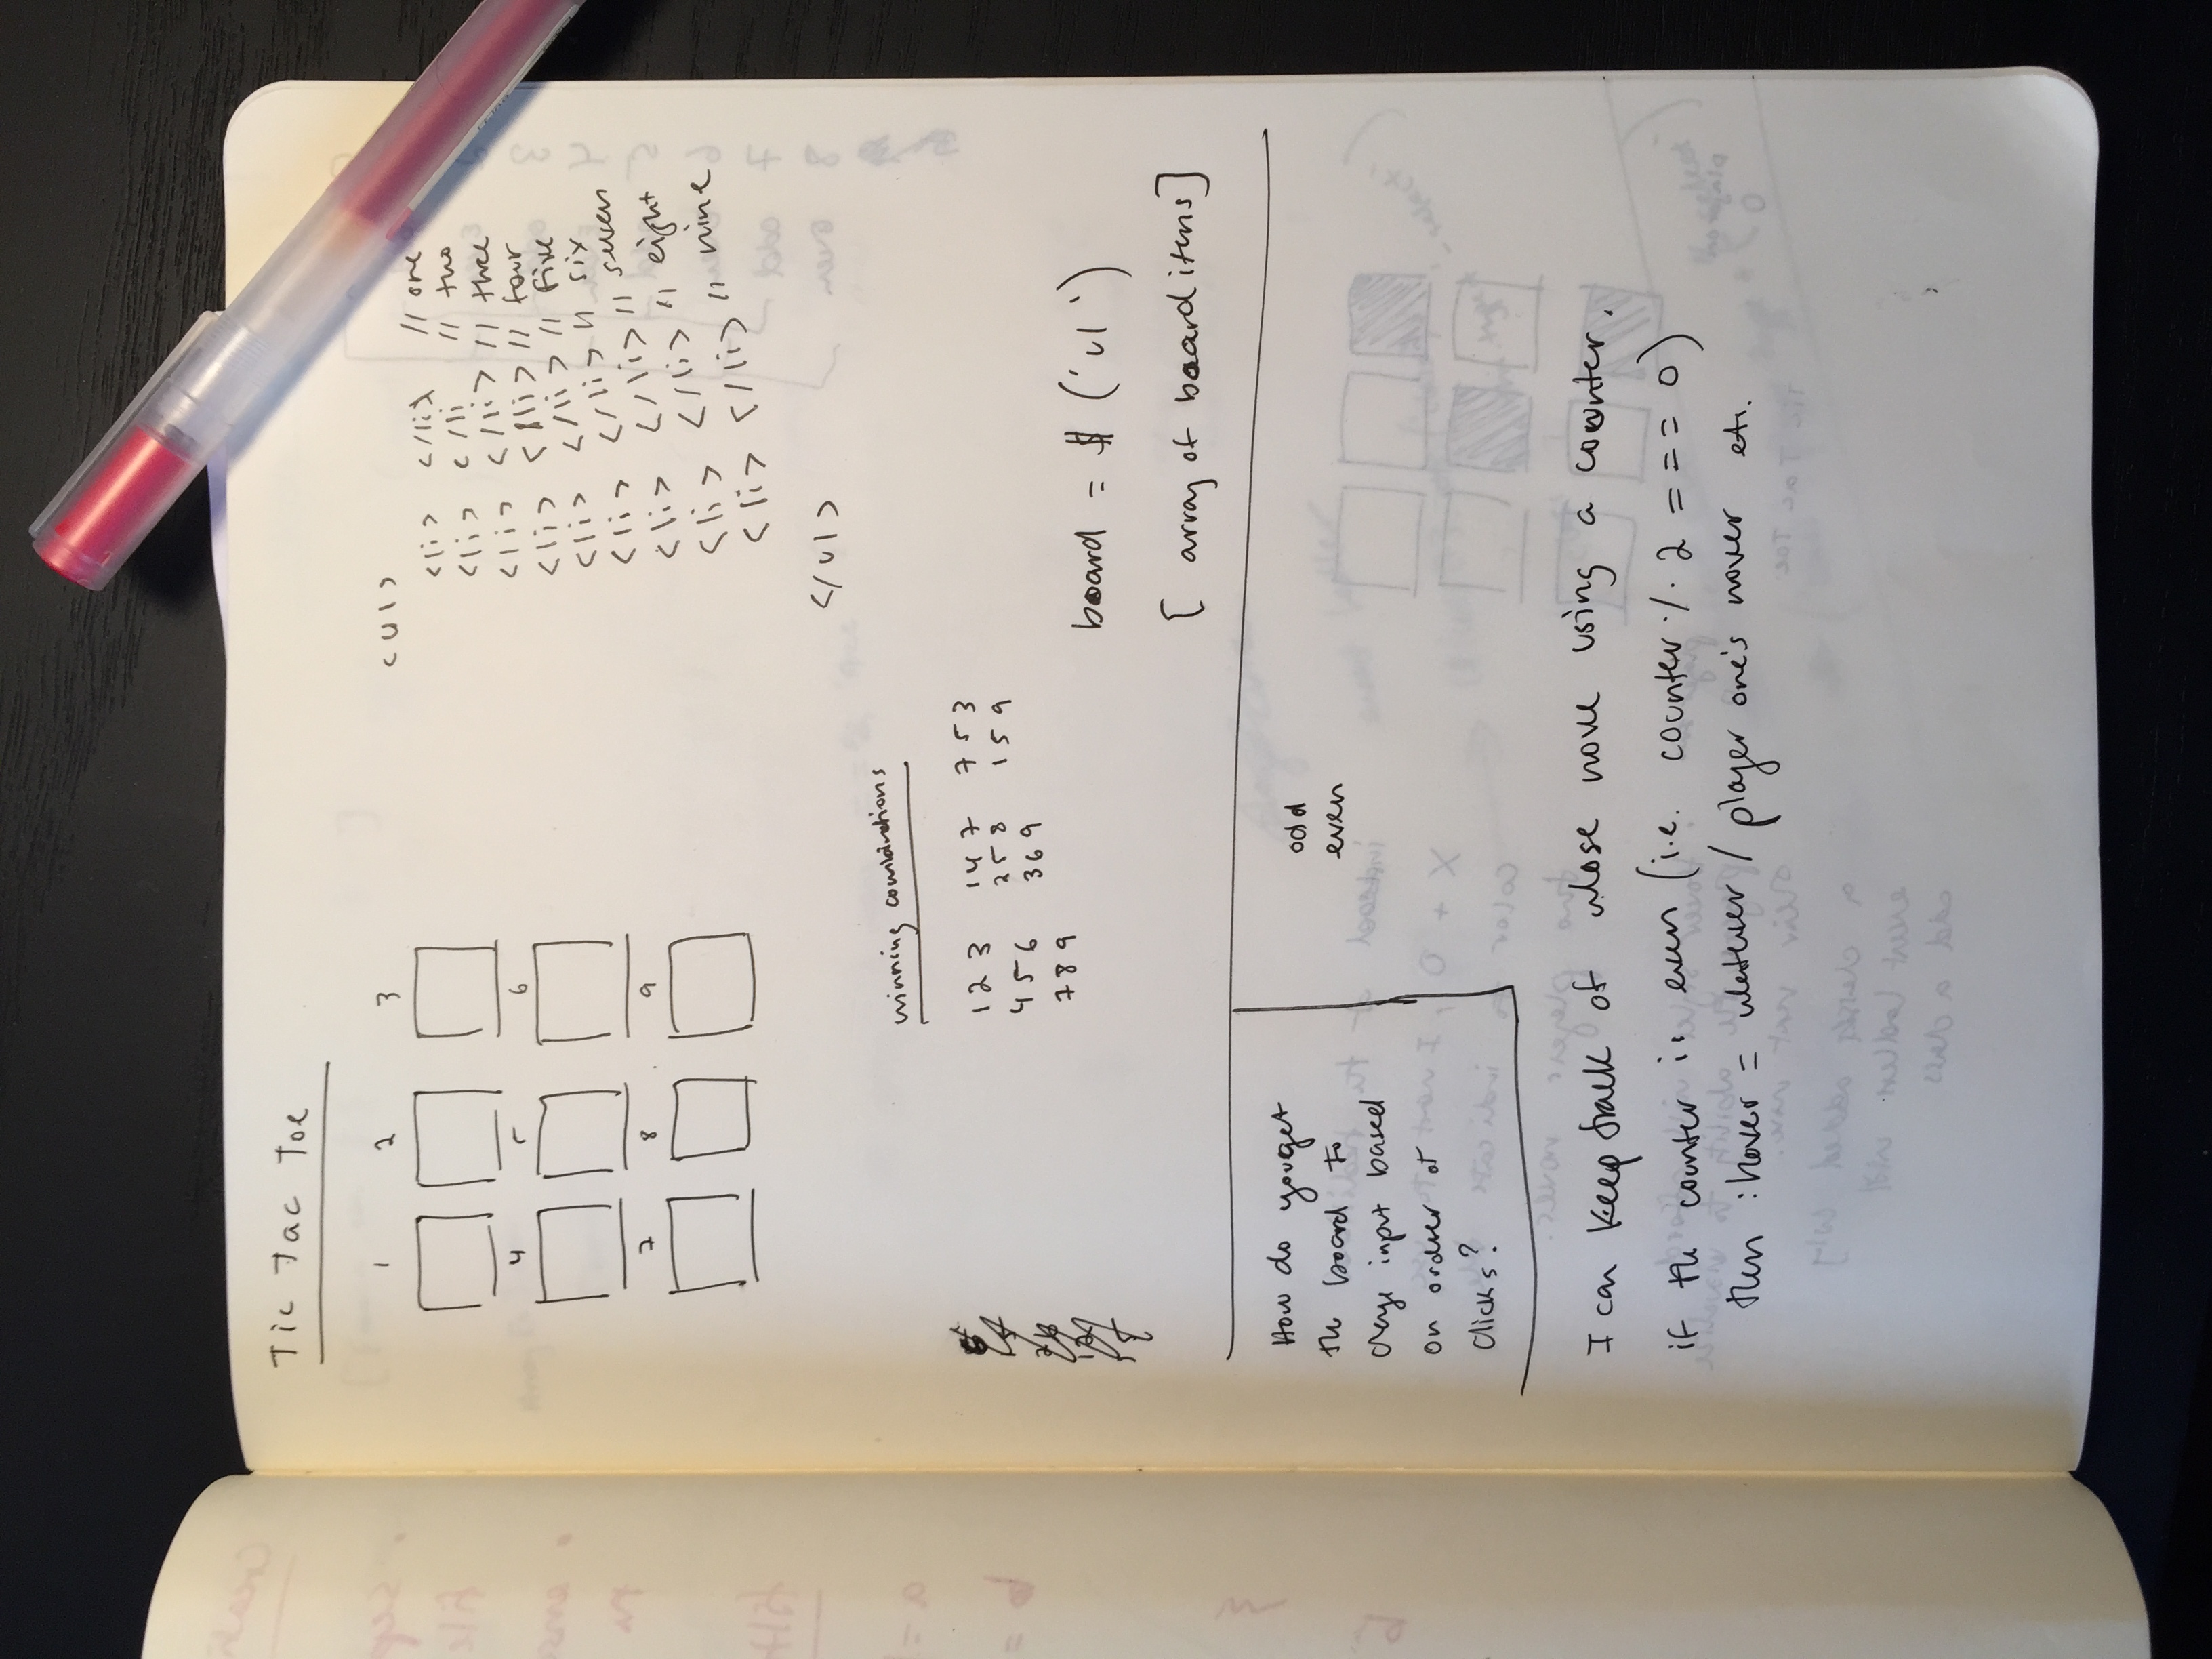 Tic Tac Toe
1 2 3
4 5 6
7 8 9
<ul>
<li> </li> // one
<li> </li // two
<li> </li> // three
<li> </li> // four
<li> </li> // five
<li> </li> // six
<li> </li> // seven
<li> </li> // eight
<li> </li> // nine
</ul>
winning combinations
1 2 3 1 4 7 7 5 3
4 5 6 2 5 8 1 5 9
7 8 9 3 6 9
board = $ ('ul')
[ array of board items ]
How do you get
the board to
input based
on ordver of
clicks?
odd
even
I can keep track of whose move using a counter.
if the counter is even (i.e. counter % 2 === 0)
then :hover = whatever / player one's hover etc.